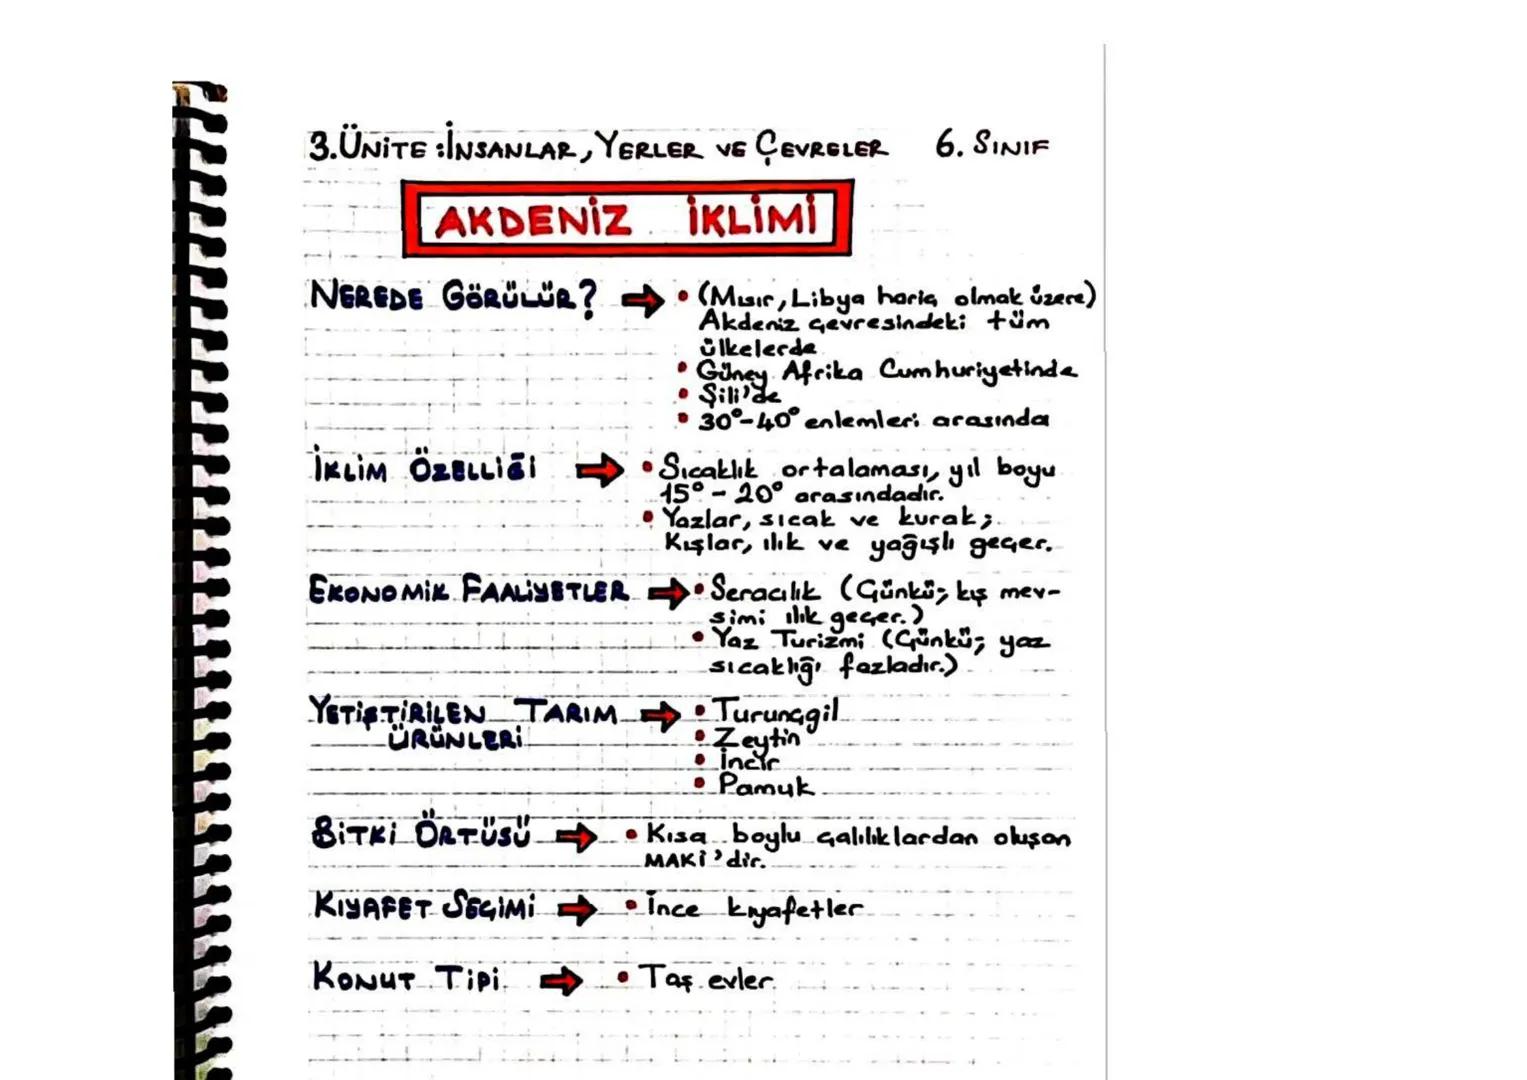 3.ÜNİTE :İNSANLAR, YERLER VE ÇEVRELER 6. SINIF
AKDENİZ İKLİMİ
NEREDE GÖRÜLÜR? ➡ • (Mısır, Libya hariç olmak üzere)
Akdeniz çevresindeki tüm
ülkelerde
• Güney Afrika Cumhuriyetinde
• Şili'de
• 30°-40° enlemleri arasında
İKLİM ÖZELLİĞİ ➡ • Sıcaklık ortalaması, yıl boyu
15° - 20° arasındadır.
• Yazlar, sıcak ve kurak;
Kışlar, ılık ve yağışlı geçer.
EKONOMİK FAALİYETLER ➡ • Seracılık (Çünkü; kış mev-
simi ılık geçer.)
• Yaz Turizmi (Çünkü; yaz
sıcaklığı fazladır.)
YETİŞTİRİLEN TARIM ➡ • Turunçgil
ÜRÜNLERİ • Zeytin
• İncir
• Pamuk
BİTKİ ÖRTÜSÜ ➡ • Kısa boylu çalılıklardan oluşan
MAKİ'dir.
KIYAFET SEÇİMİ ➡ • İnce kıyafetler
KONUT TİPİ ➡ • Taş evler